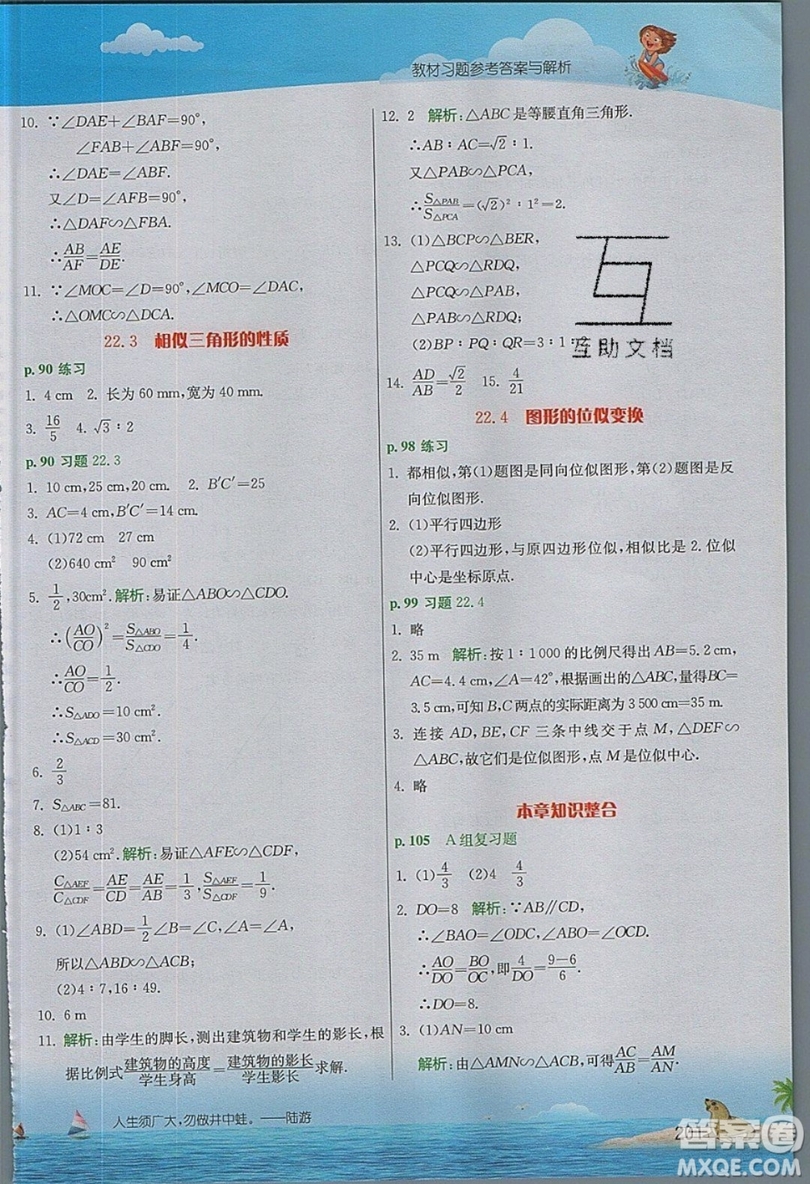 教材习题参考答案与解析
10. ∵∠DAE+∠BAF=90°,
∠FAB+∠ABF=90°,
∴∠DAE=∠ABF.
又∠D=∠AFB=90°,
∴△DAF∽△FBA.
∴AB/AF=AE/DE.
11. ∵∠MOC=∠D=90°,∠MCO=∠DAC,
∴△OMC∽△DAC.
22.3 相似三角形的性质
p.90 练习
1. 4 cm 2. 长为60 mm,宽为40 mm.
3. 16/5 4. √3∶2
p.90 习题22.3
1. 10 cm,25 cm,20 cm. 2. B′C′=25
3. AC=4 cm,B′C′=14 cm.
4. (1)72 cm 27 cm
(2)640 cm² 90 cm²
5. 1/2,30cm². 解析:易证△ABO∽△CDO.
∴(AO/CO)²=S△ABO/S△CDO=1/4.
∴AO/CO=1/2.
∴S△ADO=10 cm².
∴S△ACD=30 cm².
6. 2/3
7. S△ABC=81.
8. (1)1∶3
(2)54 cm² 解析:易证△AFE∽△CDF,
C△AEF/C△CDF=AE/CD=AE/AB=1/3,S△AEF/S△CDF=1/9.
9. (1)∠ABD=1/2∠B=∠C,∠A=∠A
所以△ABD∽△ACB.
(2)4∶7,16∶49.
10. 6 m
11. 解析:由学生的脚长,测出建筑物和学生的影长,根
据比例式建筑物的高度/学生身高=建筑物的影长/学生影长求解.
12. 2 解析:△ABC是等腰直角三角形.
∴AB∶AC=√2∶1.
又△PAB∽△PCA,
∴S△PAB/S△PCA=(√2)²∶1²=2.
13. (1)△BCP∽△BER,
△PCQ∽△RDQ,
△PCQ∽△PAB,
△PAB∽△RDQ;
(2)BP∶PQ∶QR=3∶1∶
互助文档
14. AD/AB=√2/2 15. 4/21
22.4 图形的位似变换
p.98 练习
1. 都相似,第(1)题图是同向位似图形,第(2)题图是反
向位似图形.
2. (1)平行四边形
(2)平行四边形,与原四边形位似,相似比是2. 位似
中心是坐标原点.
p.99 习题22.4
1. 略
2. 35 m 解析:按1∶1 000的比例尺得出AB=5.2 cm,
AC=4.4 cm,∠A=42°,根据画出的△ABC,量得BC=
3.5 cm,可知B,C两点的实际距离为3 500 cm=35 m.
3. 连接AD,BE,CF三条中线交于点M,△DEF∽
△ABC,故它们是位似图形,点M是位似中心.
4. 略
本章知识整合
p.105 A组复习题
1. (1)4/3 (2)4 4/3
2. DO=8 解析:∵AB∥CD,
∴∠BAO=∠ODC,∠ABO=∠OCD.
∴AO/DO=BO/OC,即4/DO=(9−6)/6.
∴DO=8.
3. (1)AN=10 cm
解析:由△AMN∽△ACB,可得AC/AB=AM/AN.
人生须广大,勿做井中蛙。——陆游
201
答案圈
MXQE.COM